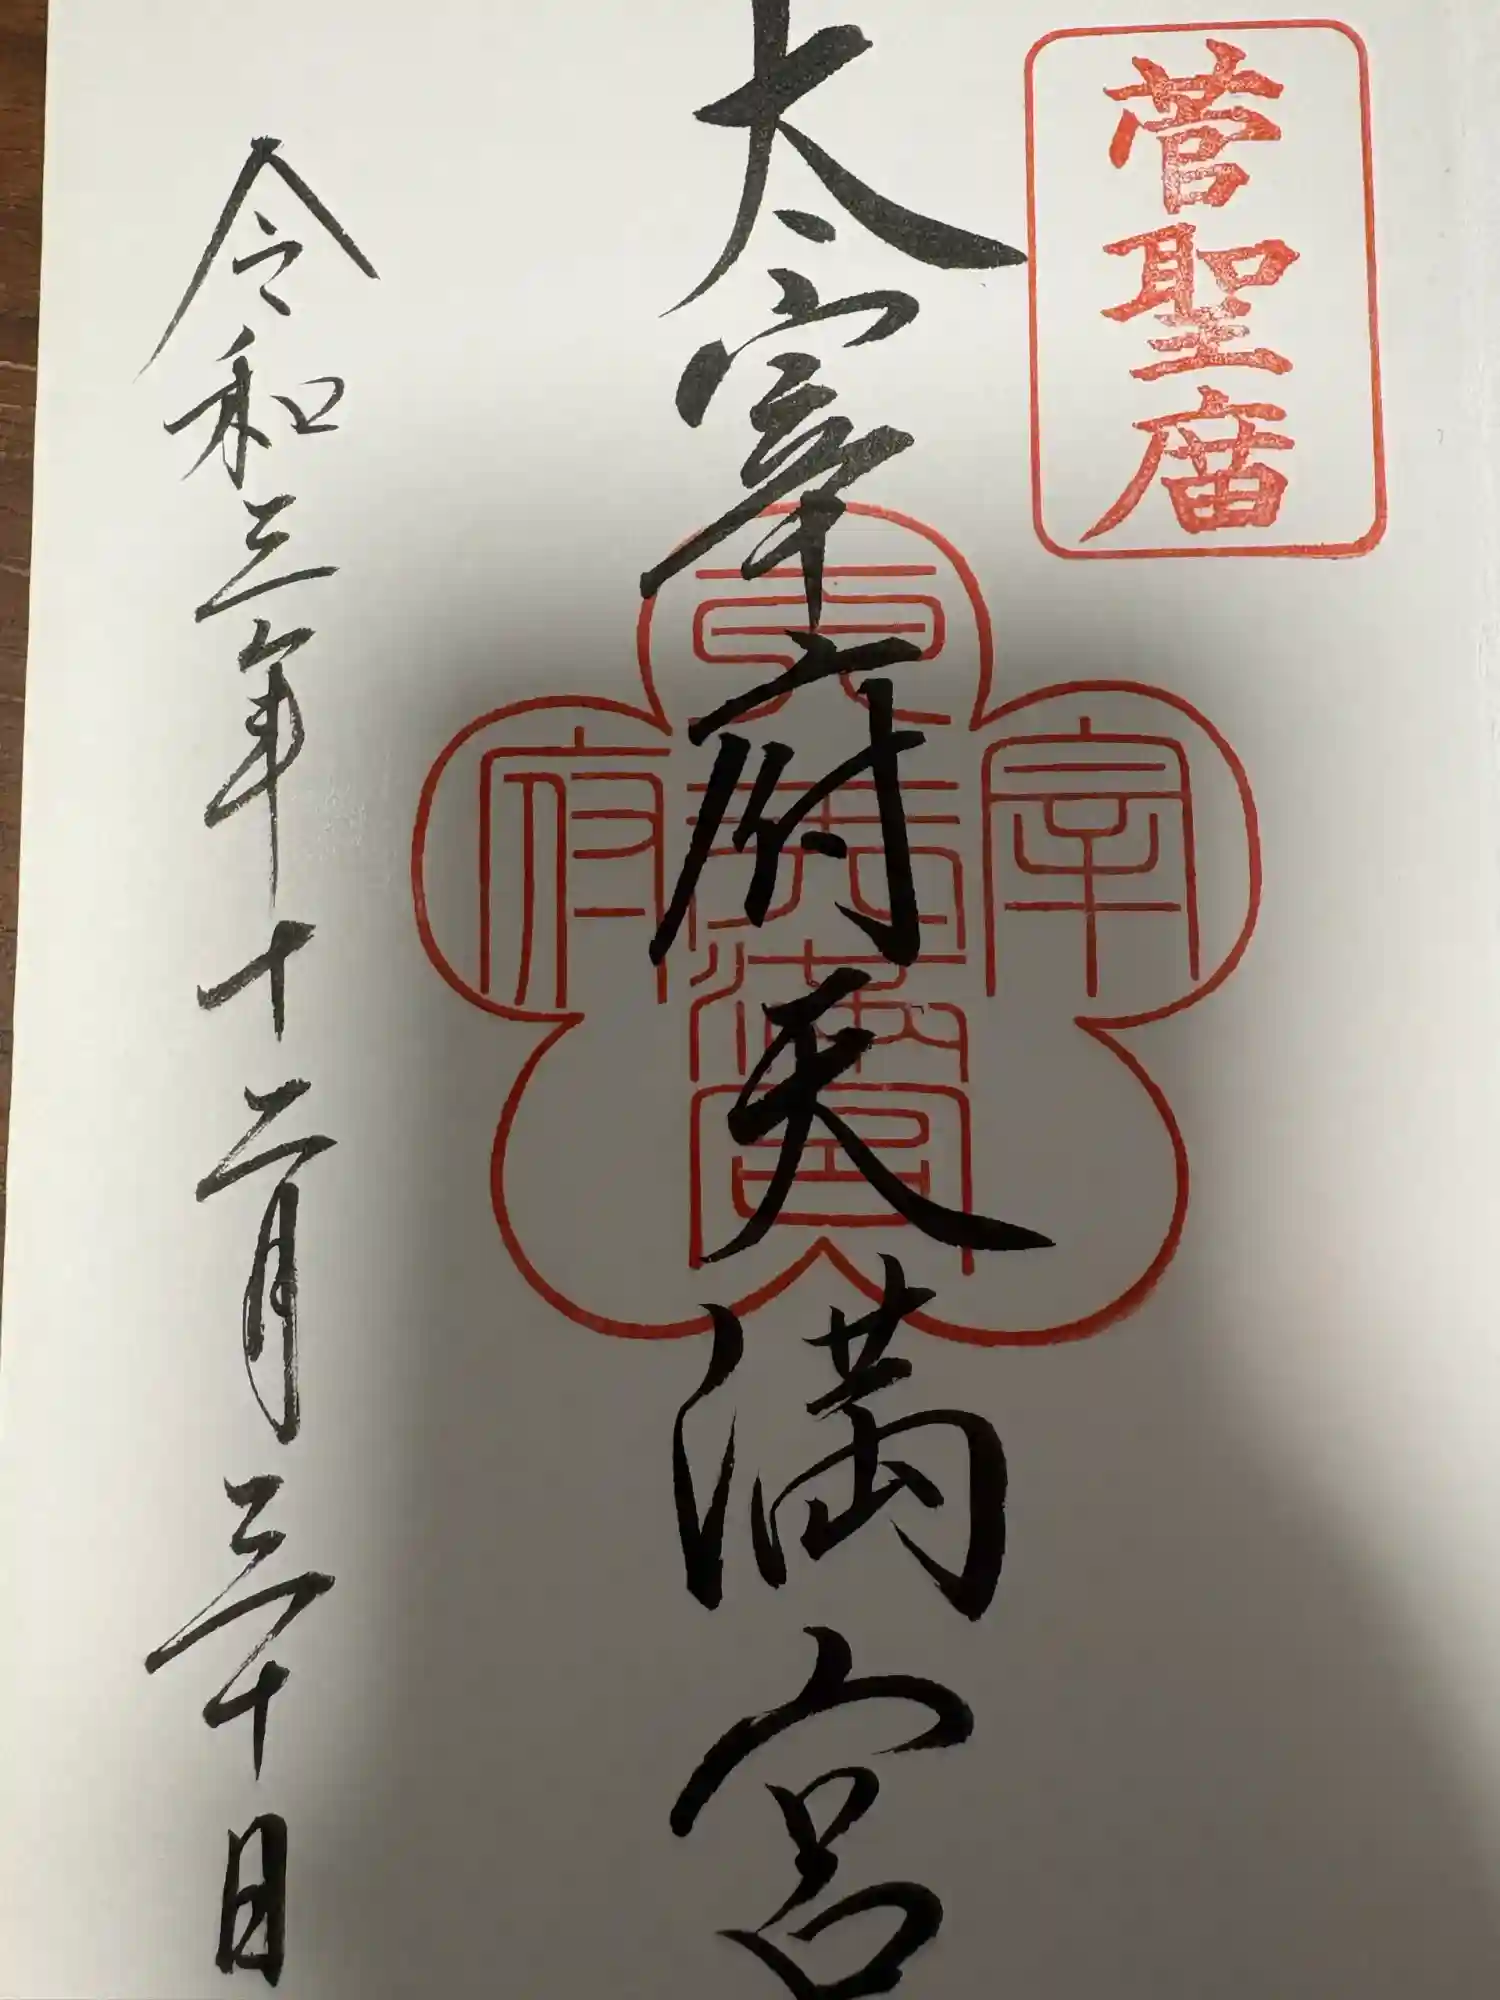 菅聖庿
太宰府天満宮
宰
府
満宮
令和三年十二月三十日